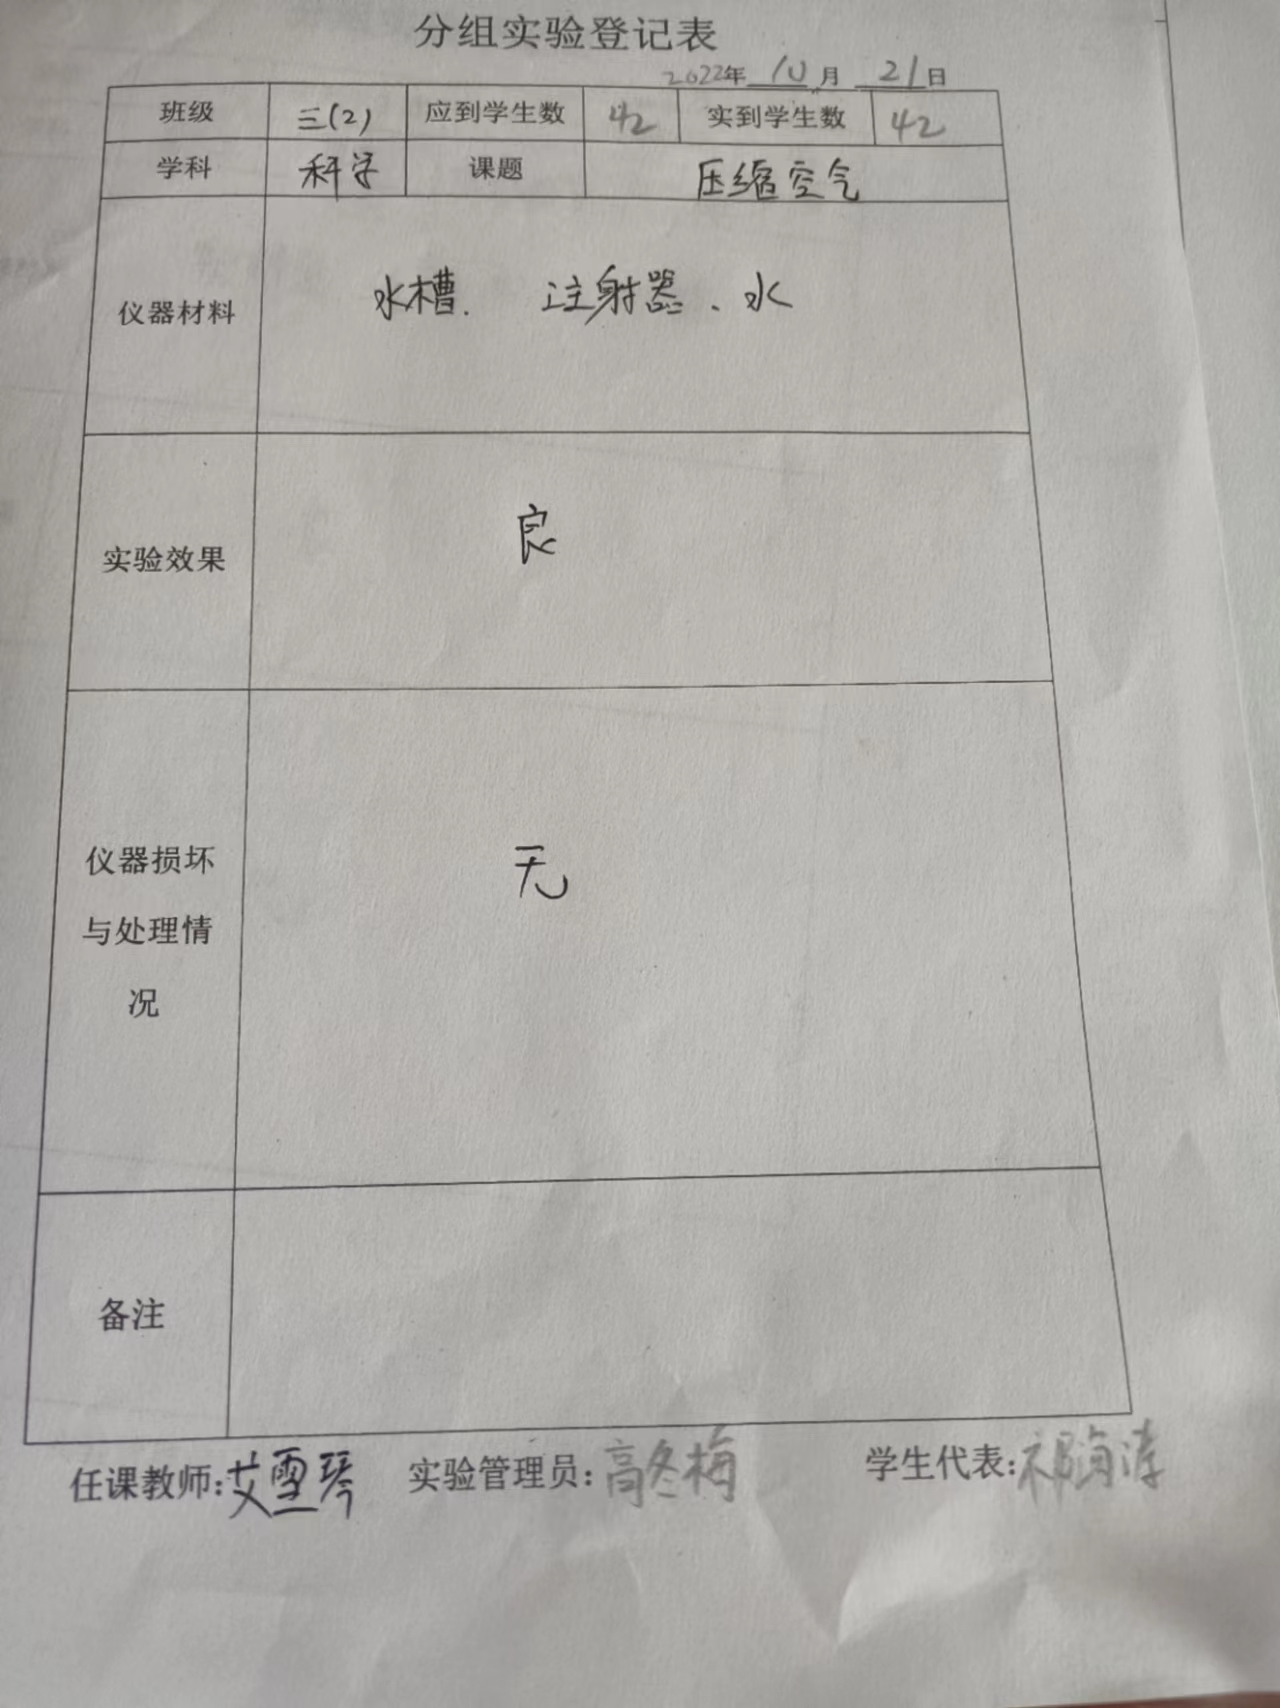 分组实验登记表
2022年 10 月 21 日
班级 三(2) 应到学生数 42 实到学生数 42
学科 科学 课题 压缩空气
仪器材料 水槽. 注射器、水
实验效果 良
仪器损坏
与处理情
况
无
备注
任课教师:艾雪琴 实验管理员:高冬梅 学生代表:祁海涛